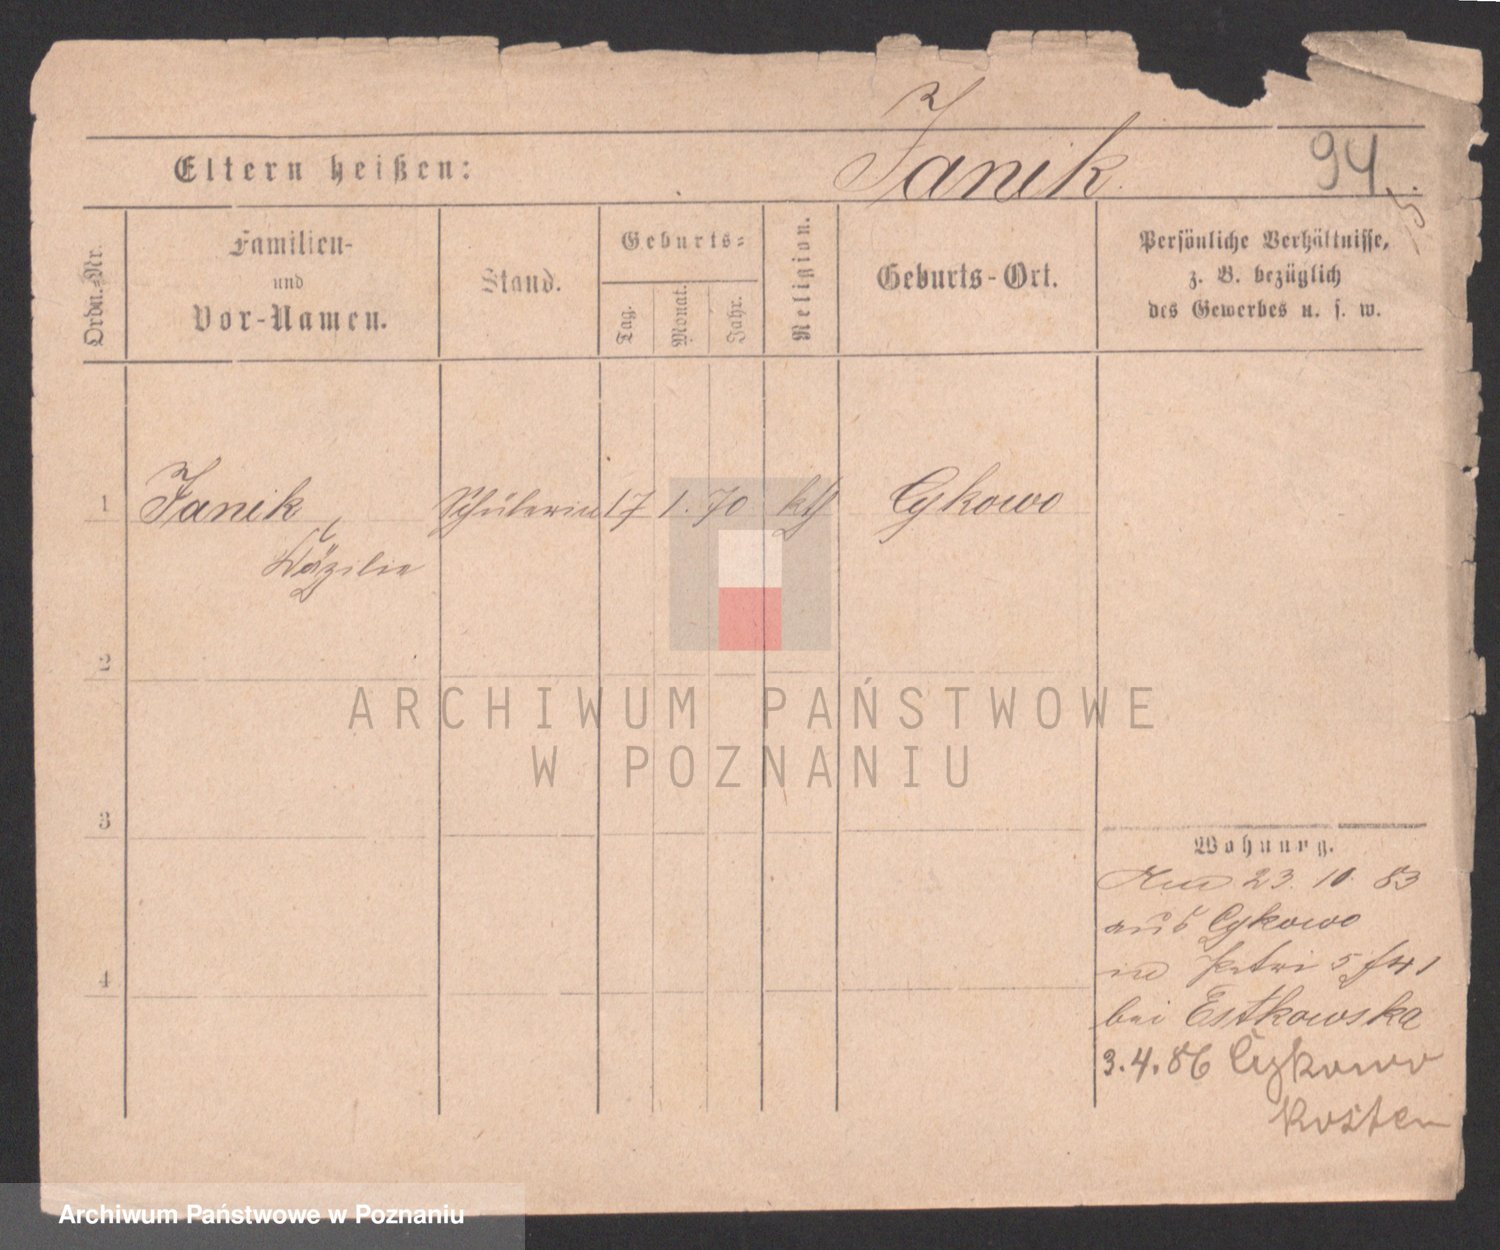 Janik
94
Eltern heißen:
Ordn.=Nr.
Familien-
und
Vor-Namen.
Stand.
Geburts=
Tag.
Monat.
Jahr.
Religion.
Geburts-Ort.
Persönliche Verhältnisse,
z. B. bezüglich
des Gewerbes u. s. w.
1 Janik Schülerin 17 1. 70 kth Cykowo
Cäzilie
2
3
4
Wohnung.
23. 10. 83
aus Cykowo
Petri 5
bei Estkowska
3.4.86 Cykowo
Kosten
ARCHIWUM PAŃSTWOWE
W POZNANIU
Archiwum Państwowe w Poznaniu